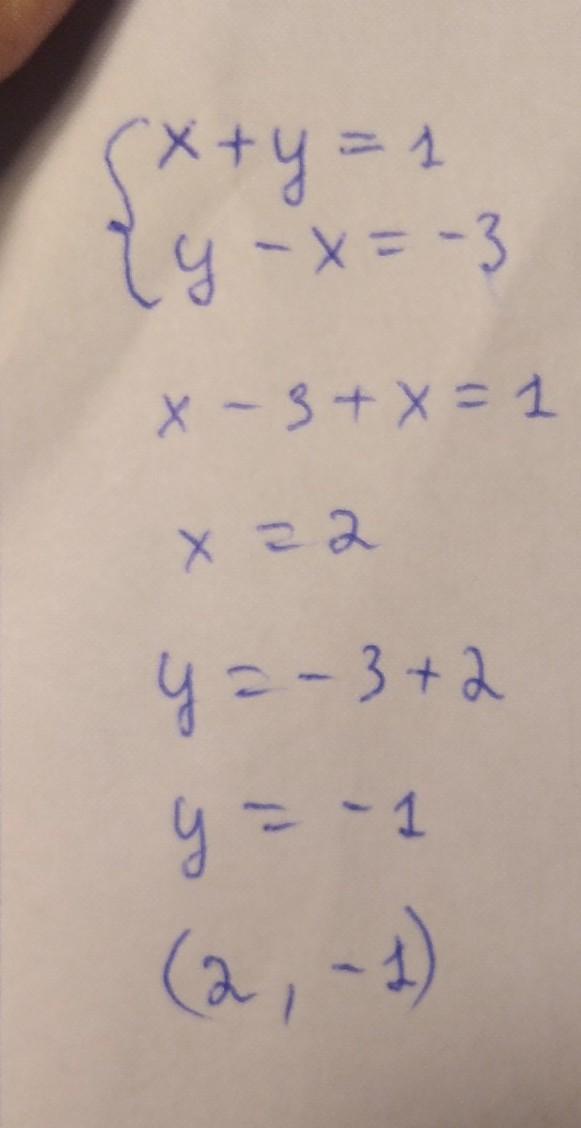 x + y = 1
y - x = -3
x - 3 + x = 1
x = 2
y = -3 + 2
y = -1
(2, -1)